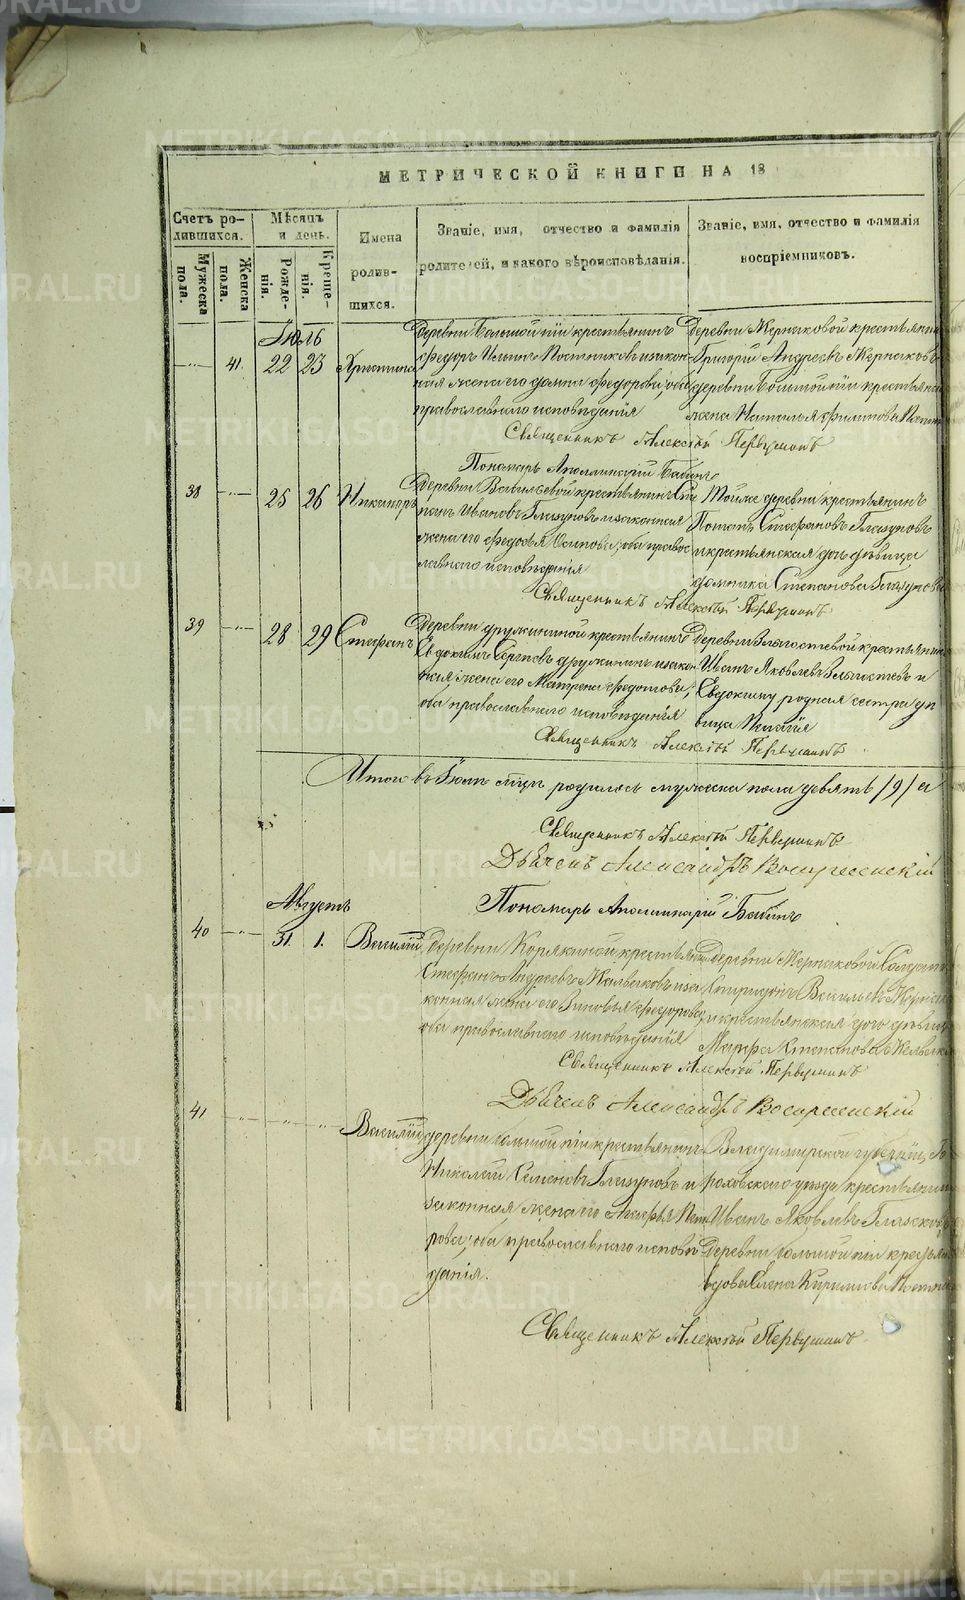 МЕТРИЧЕСКОЙ КНИГИ НА 18
Счетъ ро-
дившихся.
Мужеска
пола.
Женска
пола.
Мѣсяцъ
и день.
Рожде-
нія.
Креще-
нія.
Имена
родив-
шихся.
Званіе, имя, отчество и фамилія
родителей, и какого вѣроисповѣданія.
Званіе, имя, отчество и фамилія
воспріемниковъ.
Іюль
41. 22 23 Христина
Деревни Большой крестьянинъ
Федоръ Ильинъ Постниковъ и закон
ная жена его Домна Федорова, оба
православнаго исповѣданія
Деревни крестьянинъ
Григорій Андреевъ
деревни Большой крестьянская
жена Наталья Филипова
Священникъ Алексѣй Первушинъ
Пономарь Аполлинарій Бабинъ
38 25 26 Никаноръ
Деревни крестьянинъ Сте
панъ Ивановъ Глазуновъ и законная
жена его Федосья Осипова, оба правос
лавнаго исповѣданія
Тойже деревни крестьянинъ
Потапъ Стефановъ Глазуновъ
и крестьянская дочь дѣвица
Домника Степанова Глазунова
Священникъ Алексѣй Первушинъ
39 28 29 Стефанъ
Деревни Дружининой крестьянинъ
Евдокимъ Сергѣевъ Дружининъ и закон
ная жена его Матрена Федотова,
оба православнаго исповѣданія
Деревни крестьянинъ
Иванъ Яковлевъ и
Евдокиму родная сестра дѣ
вица Пелагія
Священникъ Алексѣй Первушинъ
Итого въ Іюлѣ мѣсяцѣ родилось мужеска пола девять /9/ а
Священникъ Алексѣй Первушинъ
Дьячекъ Александръ Воскресенскій
Пономарь Аполлинарій Бабинъ
Августъ
40 31. 1. Василій
Деревни Корякиной крестьянинъ
Стефанъ Андреевъ и за
конная жена его Зиновья Федорова,
оба православнаго исповѣданія
Деревни Солдатъ
Спиридонъ Васильевъ
и крестьянская дочь дѣвица
Марфа Степанова
Священникъ Алексѣй Первушинъ
Дьячекъ Александръ Воскресенскій
41 Василій
Деревни Большой крестьянинъ
Николай Семеновъ Глазуновъ и
законная жена его Агафья Пет
рова, оба православнаго исповѣ
данія.
Владимирской губерніи, Го
роховскаго уѣзда крестьянинъ
Иванъ Яковлевъ
Деревни Большой крестьян
вдова Елена Кирилова
Священникъ Алексѣй Первушинъ
METRIKI.GASO-URAL.RU